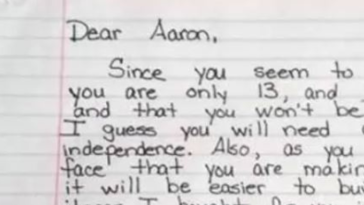 Dear Aaron,
Since you seem to
you are only 13, and
and that you won't be
I guess you will need
independence. Also, as you
face that you are makin
it will be easier to bu